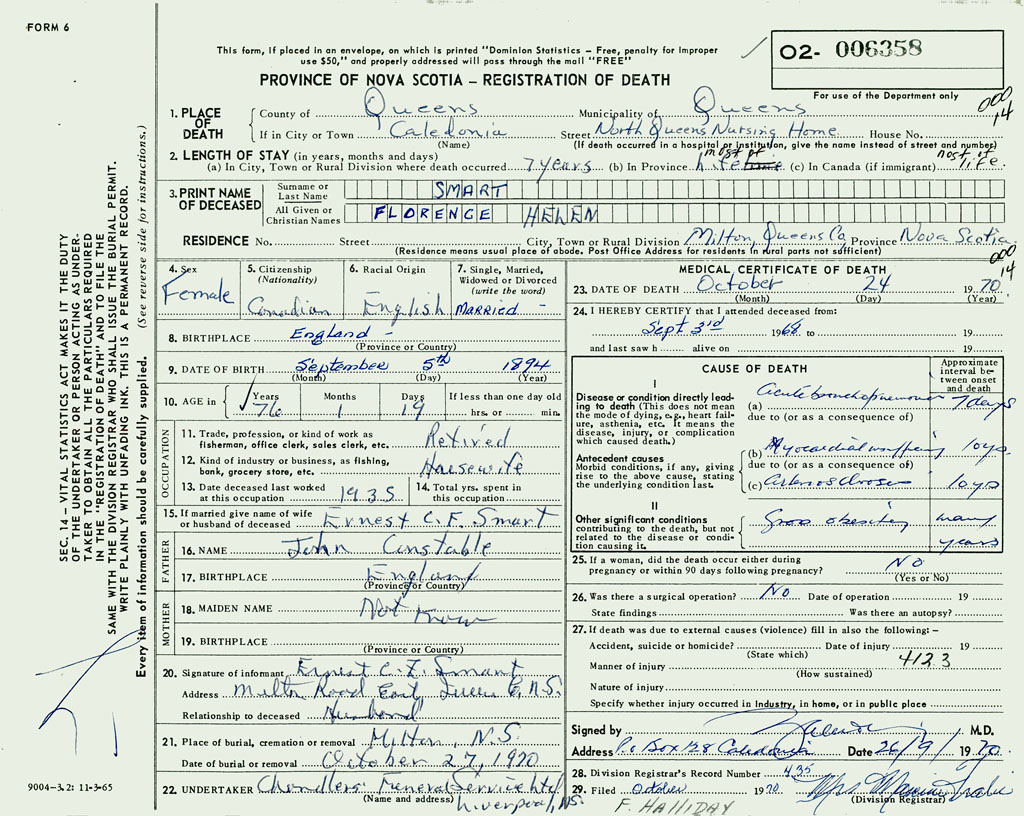 FORM 6
This form, if placed in an envelope, on which is printed "Dominion Statistics – Free, penalty for improper
use $50," and properly addressed will pass through the mail "FREE"
02- 006358
For use of the Department only
PROVINCE OF NOVA SCOTIA – REGISTRATION OF DEATH
000
14
1. PLACE OF DEATH
County of Queens Municipality of Queens
If in City or Town Caledonia Street North Queens Nursing Home House No.
(Name) (If death occurred in a hospital or institution, give the name instead of street and number)
2. LENGTH OF STAY (in years, months and days)
(a) In City, Town or Rural Division where death occurred 7 years (b) In Province most of life (c) In Canada (if immigrant) most life
3. PRINT NAME OF DECEASED
Surname or Last Name SMART
All Given or Christian Names FLORENCE HELEN
RESIDENCE No. Street City, Town or Rural Division Milton, Queens Co Province Nova Scotia
(Residence means usual place of abode. Post Office Address for residents in rural parts not sufficient)
000
14
4. Sex Female
5. Citizenship (Nationality) Canadian
6. Racial Origin English
7. Single, Married, Widowed or Divorced (write the word) MARRIED -
8. BIRTHPLACE England -
(Province or Country)
9. DATE OF BIRTH September 5th 1894
(Month) (Day) (Year)
10. AGE in Years 76 Months 1 Days 19 If less than one day old hrs. or min.
OCCUPATION
11. Trade, profession, or kind of work as fisherman, office clerk, sales clerk, etc. Retired
12. Kind of industry or business, as fishing, bank, grocery store, etc. Housewife
13. Date deceased last worked at this occupation 1935
14. Total yrs. spent in this occupation
15. If married give name of wife or husband of deceased Ernest C. F. Smart
FATHER
16. NAME John Constable
17. BIRTHPLACE England
(Province or Country)
MOTHER
18. MAIDEN NAME Not Know
19. BIRTHPLACE
(Province or Country)
20. Signature of informant Ernest C. F. Smart
Address Milton Road East, Queens Co, N.S.
Relationship to deceased Husband
21. Place of burial, cremation or removal Milton, N.S.
Date of burial or removal October 27, 1970
22. UNDERTAKER Chandlers' Funeral Service Ltd
(Name and address) Liverpool, NS.
MEDICAL CERTIFICATE OF DEATH
23. DATE OF DEATH October 24 1970
(Month) (Day) (Year)
24. I HEREBY CERTIFY that I attended deceased from:
Sept 3rd 1968 to 19
and last saw h alive on 19
CAUSE OF DEATH
Approximate interval between onset and death
I
Disease or condition directly leading to death (This does not mean the mode of dying, e.g., heart failure, asthenia, etc. It means the disease, injury, or complication which caused death.)
(a) Acute bronchopneumonia 7 days
due to (or as a consequence of)
Antecedent causes
Morbid conditions, if any, giving rise to the above cause, stating the underlying condition last.
(b) Myocardial 10 yrs
due to (or as a consequence of)
(c) Arteriosclerosis 10 yrs
II
Other significant conditions contributing to the death, but not related to the disease or condition causing it.
Gross obesity many years
25. If a woman, did the death occur either during pregnancy or within 90 days following pregnancy? No
(Yes or No)
26. Was there a surgical operation? No Date of operation 19
State findings Was there an autopsy?
27. If death was due to external causes (violence) fill in also the following: –
Accident, suicide or homicide? Date of injury 19
(State which)
4123
Manner of injury
(How sustained)
Nature of injury
Specify whether injury occurred in industry, in home, or in public place
Signed by M.D.
Address P.O Box 128 Caledonia Date 26/9/ 1970
28. Division Registrar's Record Number 435
29. Filed October 1970 Mrs
(Division Registrar)
F. HALLIDAY
SEC. 14 – VITAL STATISTICS ACT MAKES IT THE DUTY
OF THE UNDERTAKER OR PERSON ACTING AS UNDER-
TAKER TO OBTAIN ALL THE PARTICULARS REQUIRED
IN THE "REGISTRATION OF DEATH" AND TO FILE THE
SAME WITH THE DIVISION REGISTRAR WHO SHALL ISSUE THE BURIAL PERMIT.
WRITE PLAINLY WITH UNFADING INK. THIS IS A PERMANENT RECORD.
Every item of information should be carefully supplied. (See reverse side for instructions.)
9004-3.2: 11-3-65